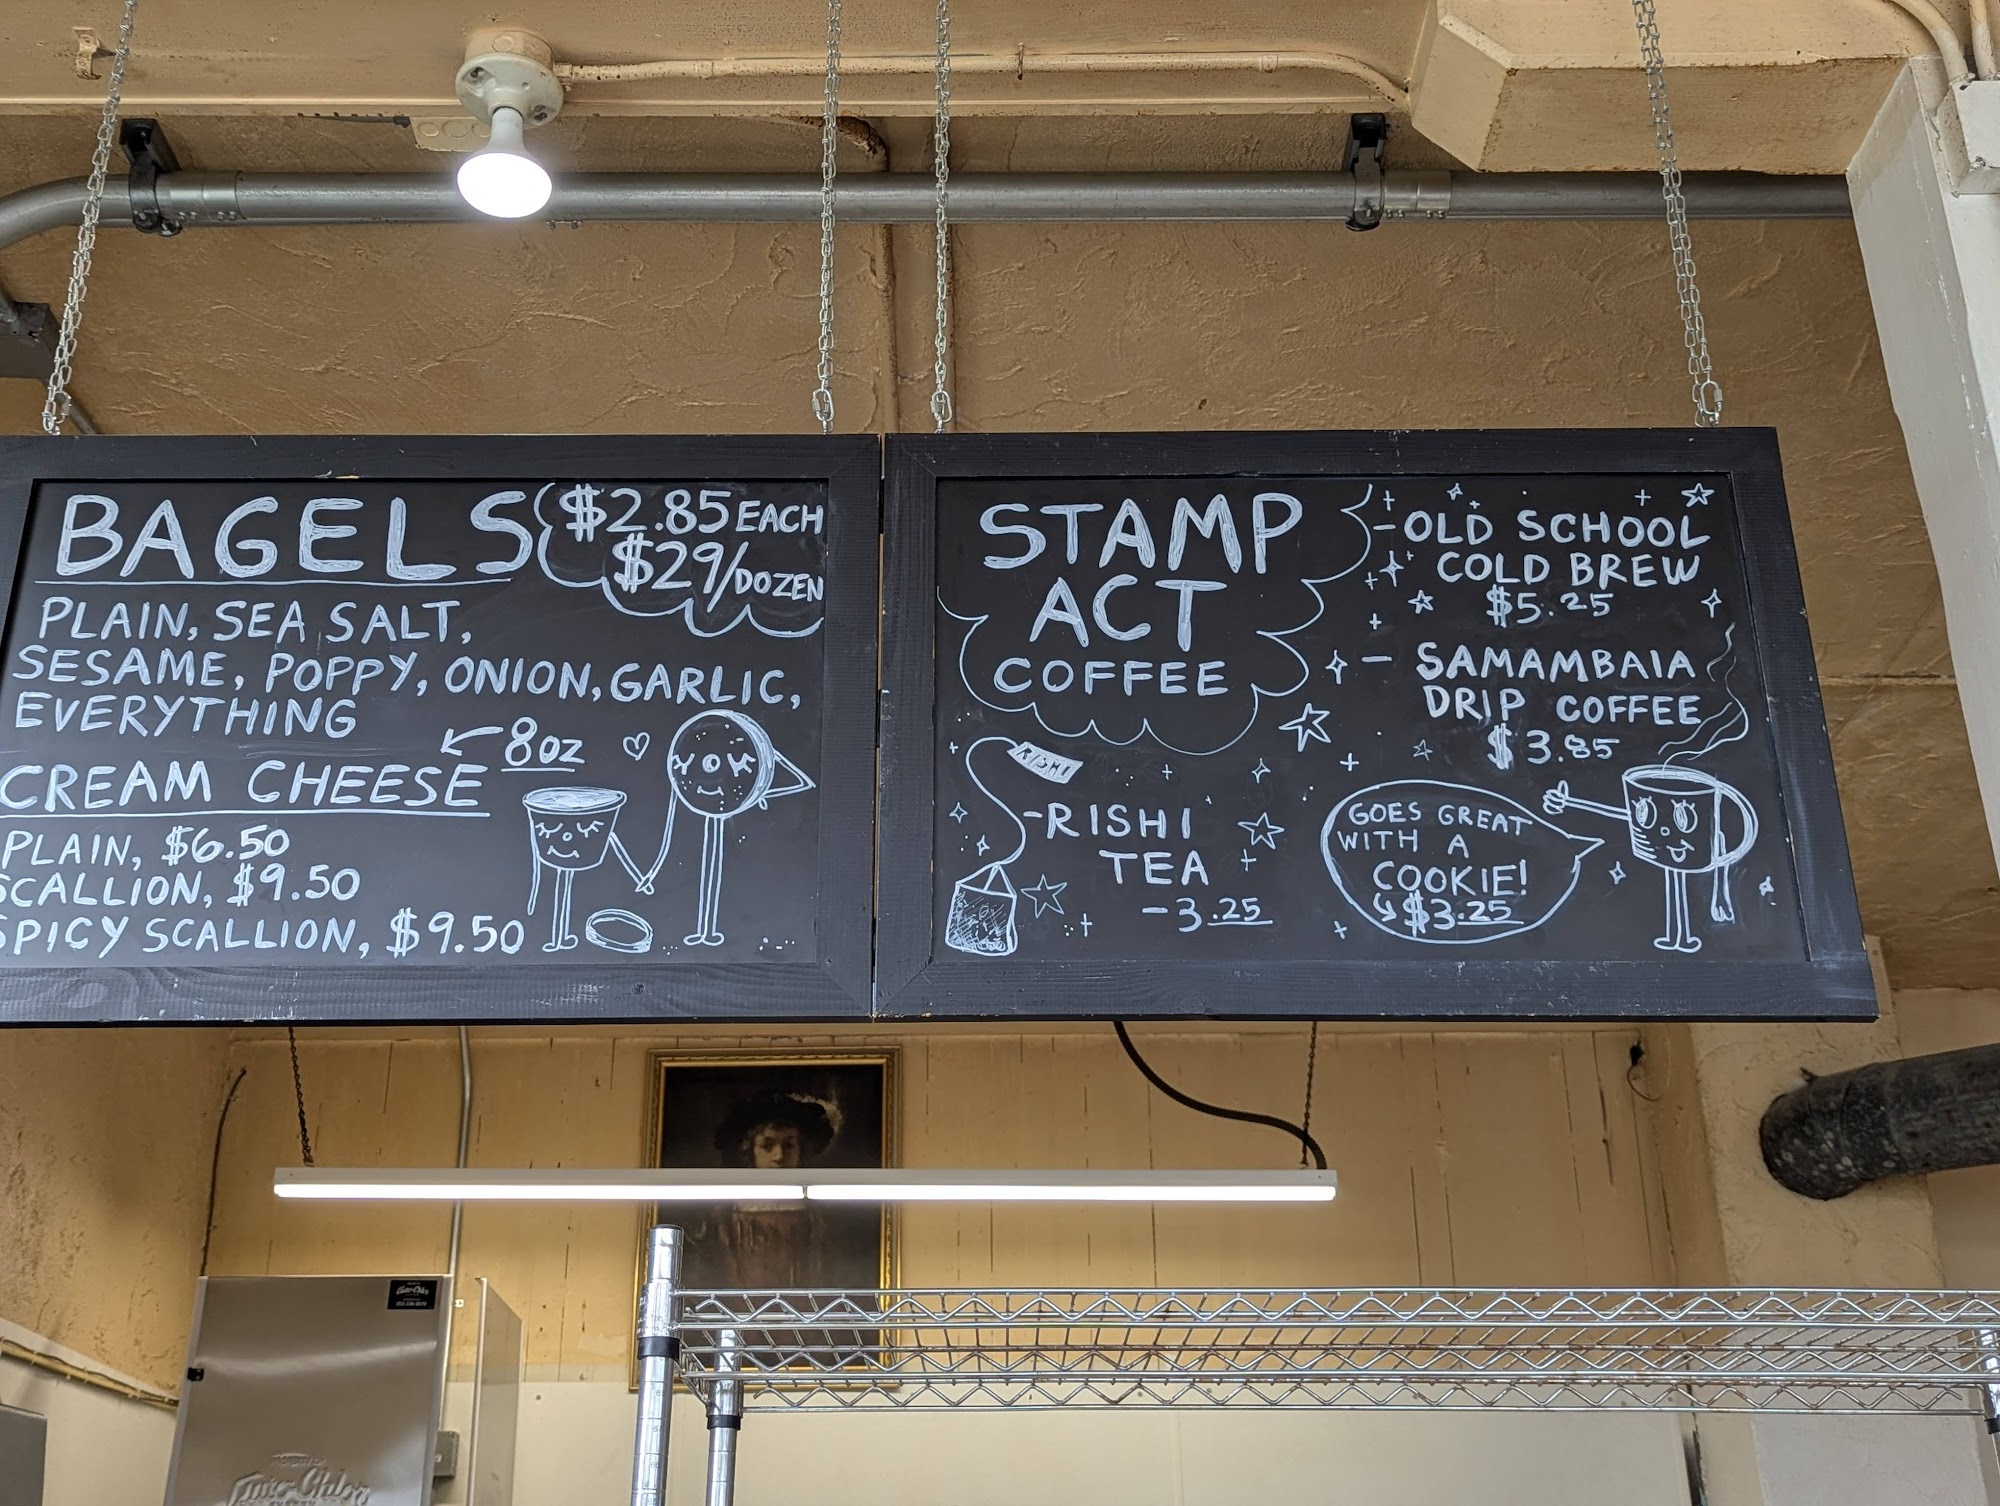 BAGELS
$2.85 EACH
$29/DOZEN
PLAIN, SEA SALT,
SESAME, POPPY, ONION, GARLIC,
EVERYTHING
8oz
CREAM CHEESE
PLAIN, $6.50
SCALLION, $9.50
SPICY SCALLION, $9.50
STAMP
ACT
COFFEE
-OLD SCHOOL
COLD BREW
$5.25
- SAMAMBAIA
DRIP COFFEE
$3.85
RISHI
-RISHI
TEA
-3.25
GOES GREAT
WITH A
COOKIE!
$3.25
Auto-Chlor
Auto-Chlor